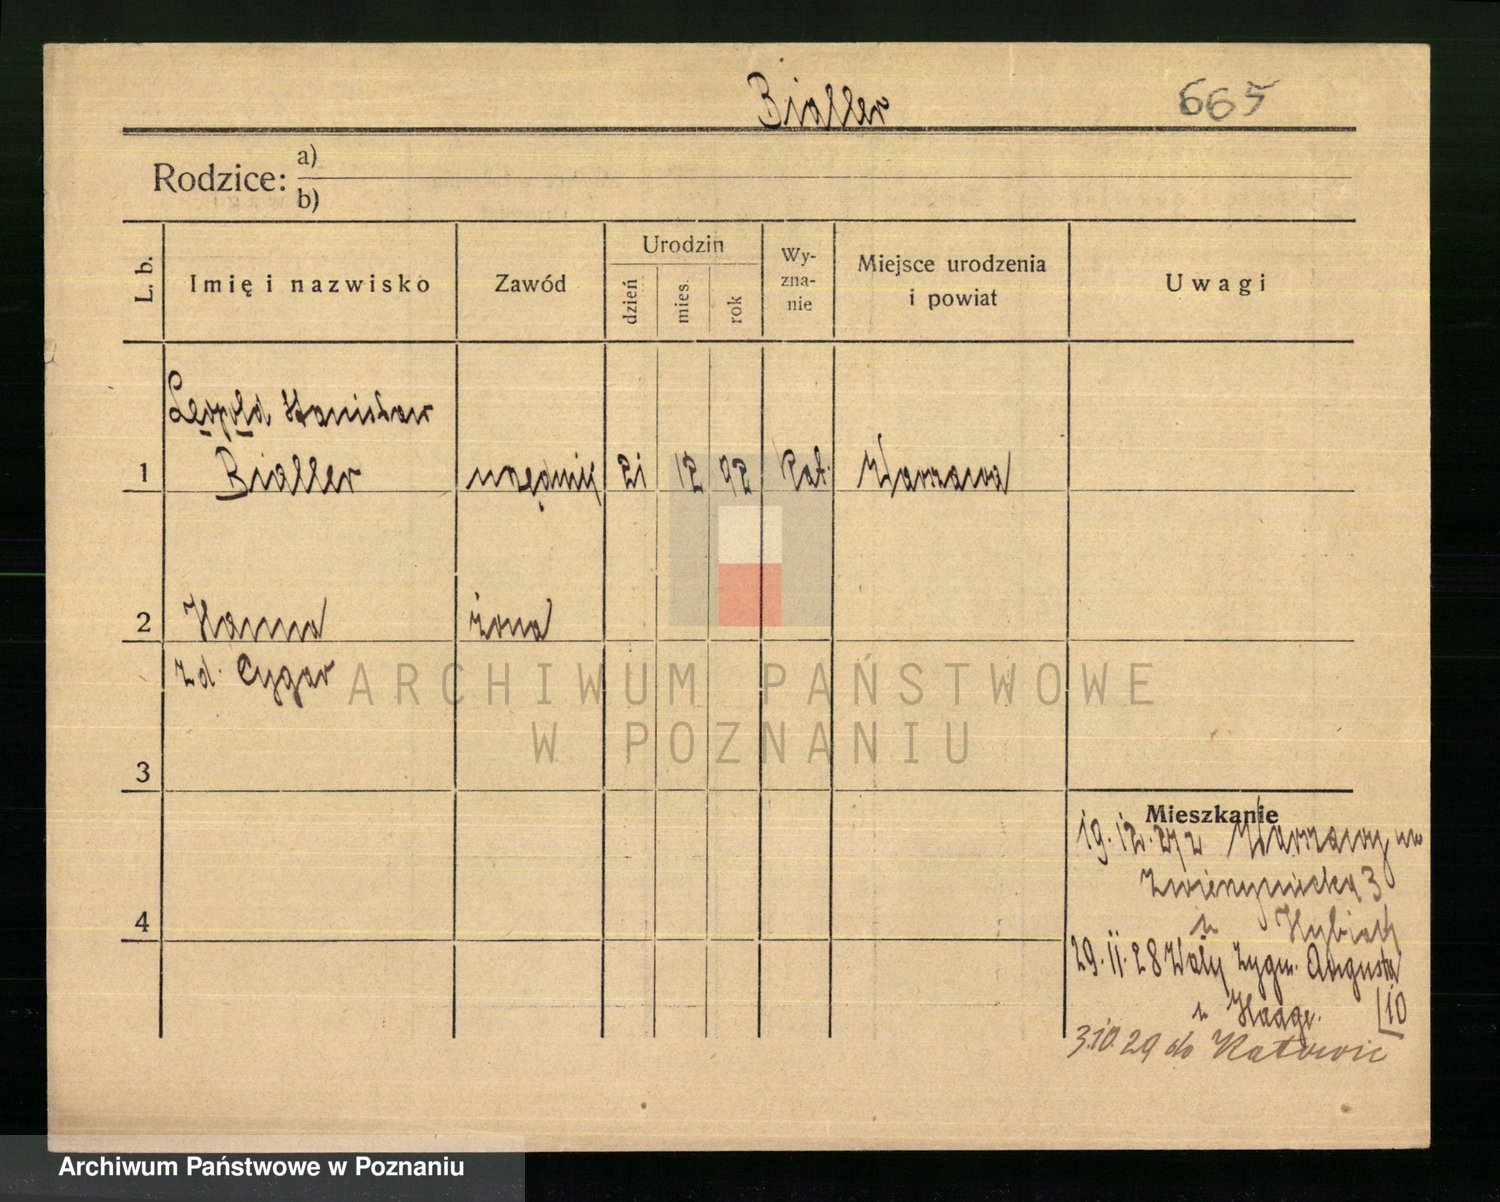 Bialler 665
Rodzice: a)
b)
L. b. Imię i nazwisko Zawód Urodzin dzień mies. rok Wy-zna-nie Miejsce urodzenia i powiat Uwagi
Leopold Stanisław
1 Bialler urzędnik 21 12 92 kat. Warszawa
2 Hanna żona
zd. Cygar
3
4
Mieszkanie
19.12.27 z Warszawy na
Zwierzyniecka 3
u
29.11.28 Wały Zygm. Augusta
u Haage. 10
3.10 29 do Katowic
ARCHIWUM PAŃSTWOWE
W POZNANIU
Archiwum Państwowe w Poznaniu